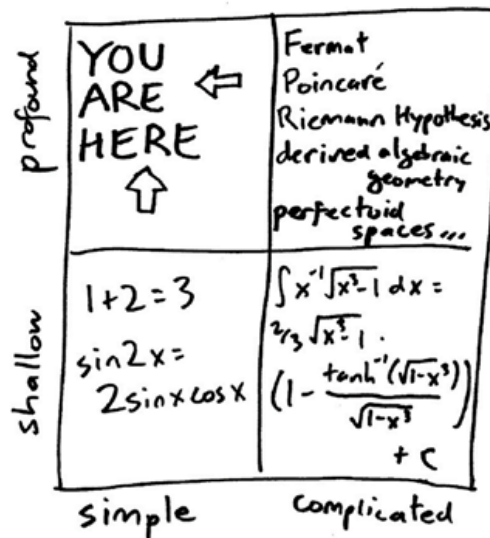 profound
YOU
ARE
HERE
Fermat
Poincaré
Riemann Hypothesis
derived algebraic
geometry
perfectoid
spaces...
shallow
1+2=3
sin2x=
2sinxcosx
∫x⁻¹√(x³-1) dx =
2/3 √(x³-1) ·
(1 - tanh⁻¹(√(1-x³))/√(1-x³))
+ C
simple
complicated